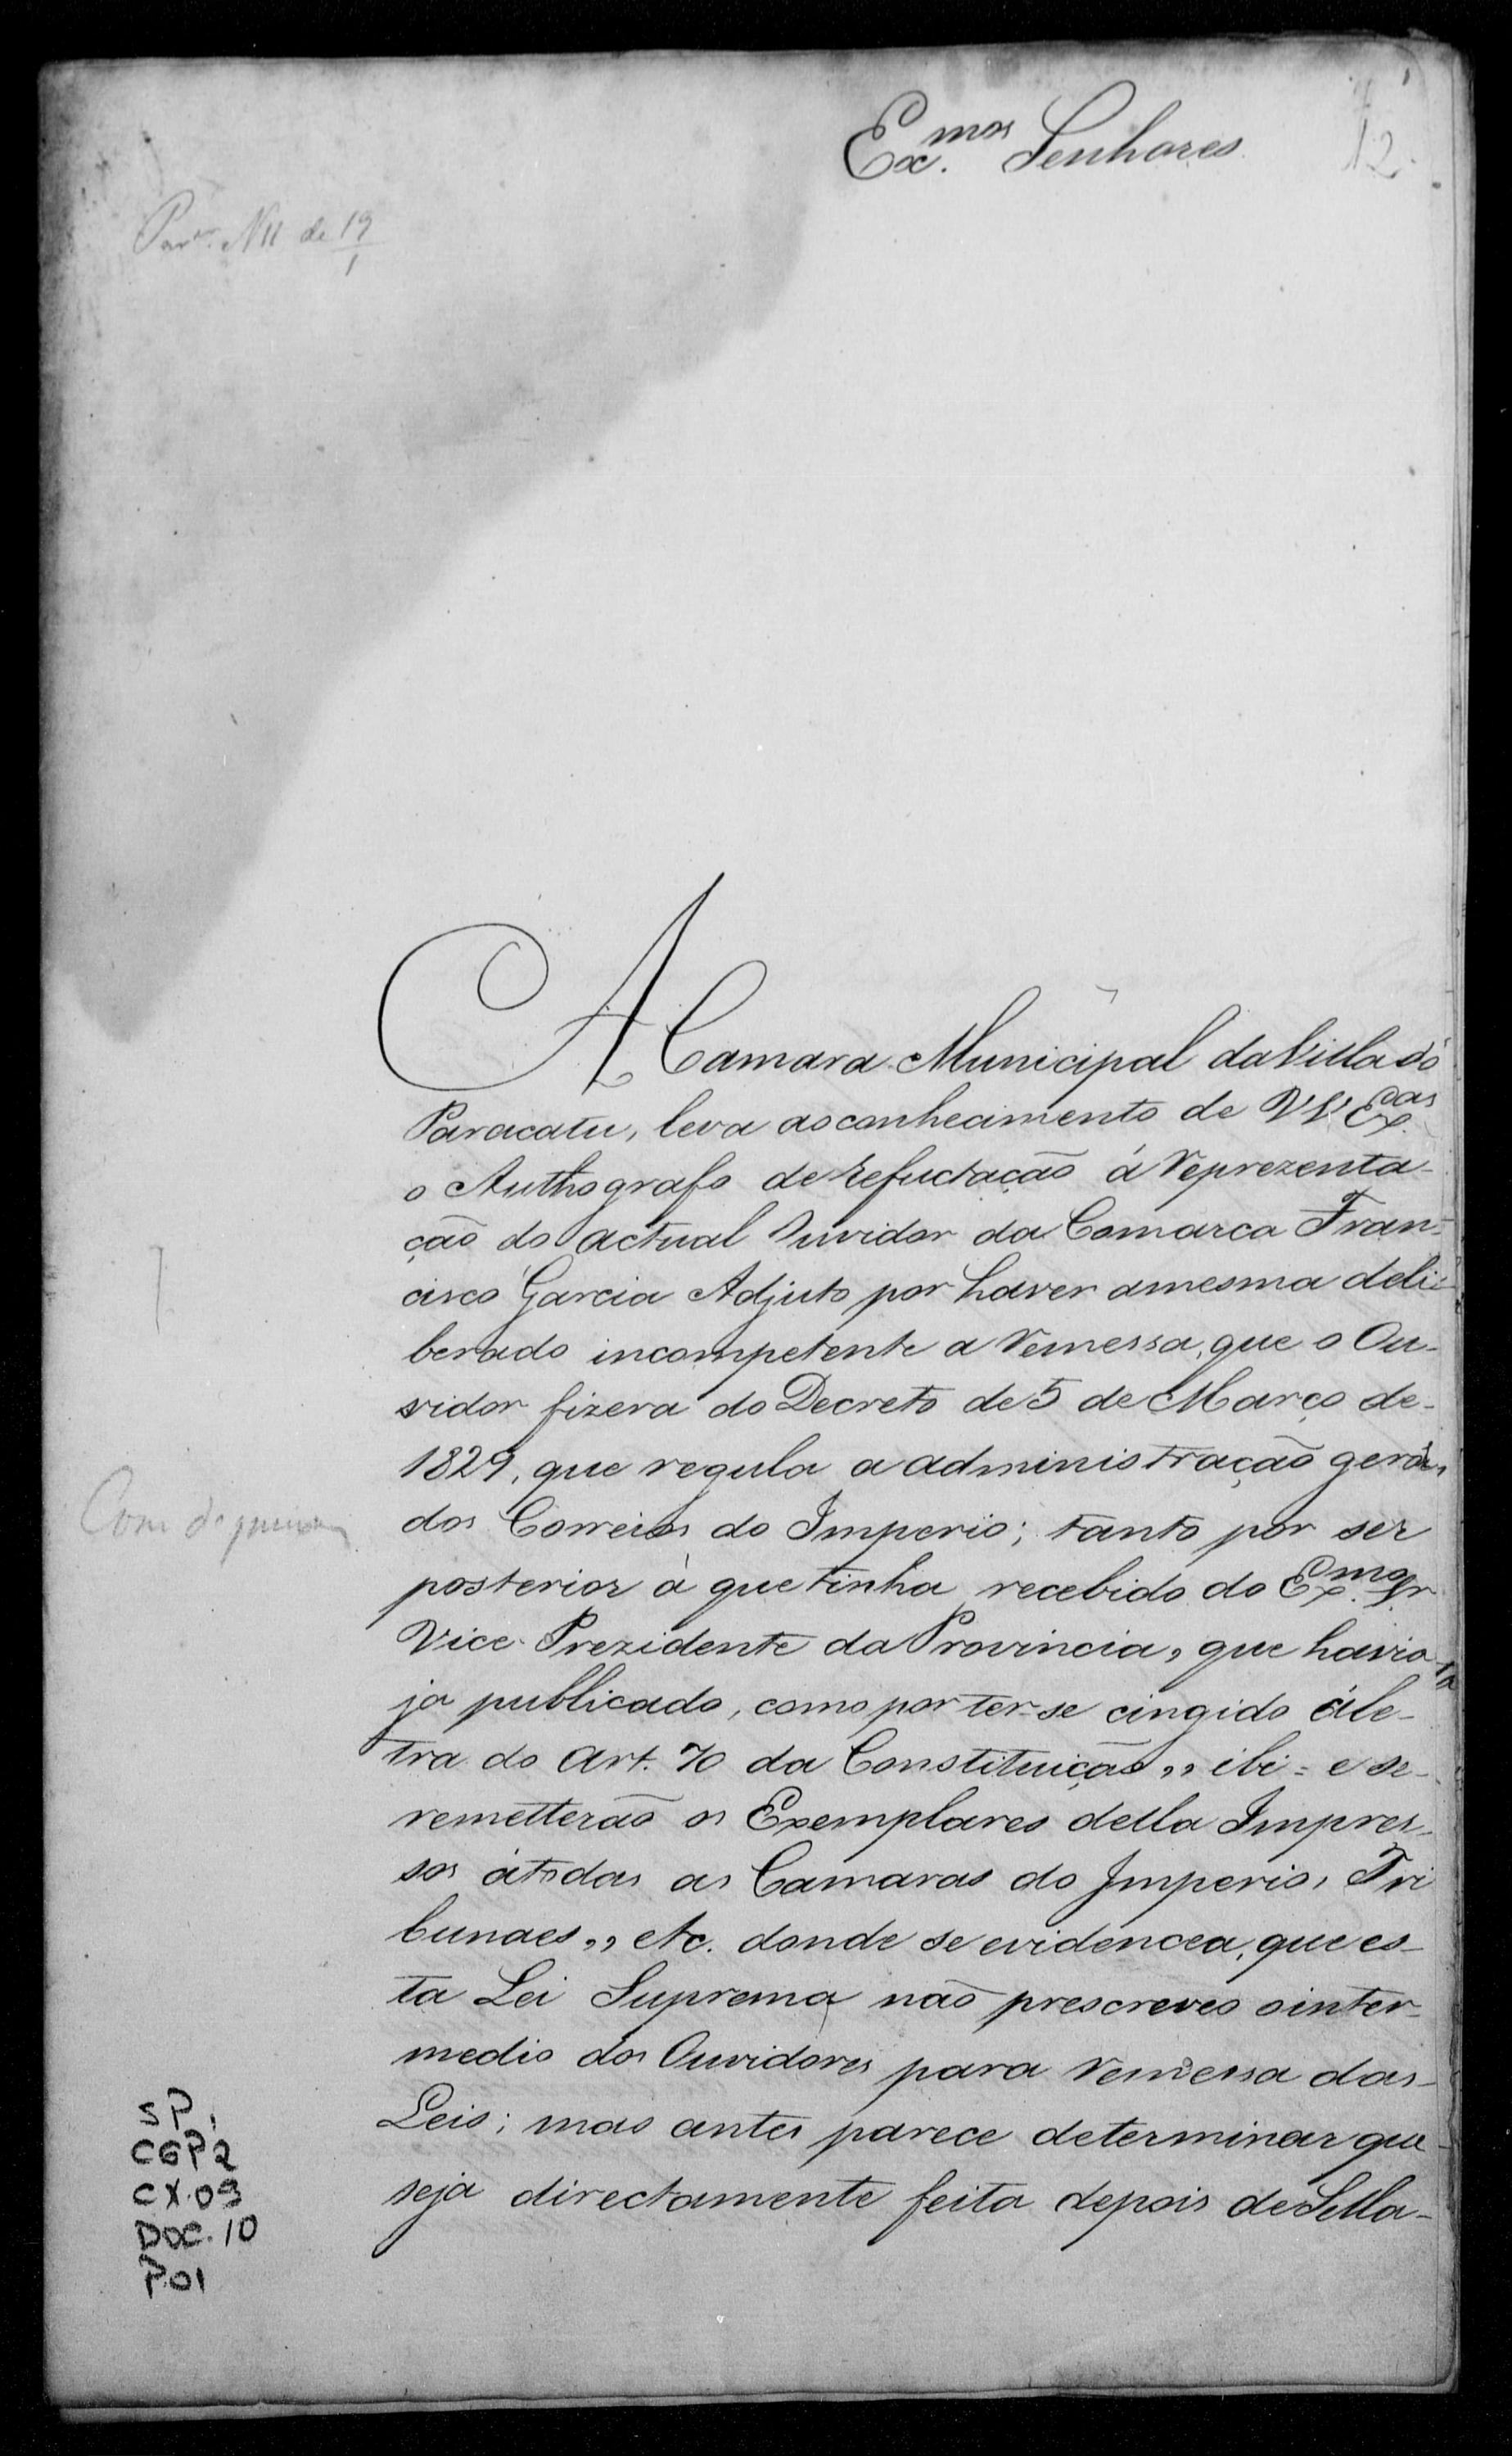 Ex.mos Senhores
12
Par.er N11 de 19
1
A Camara Municipal da Villa do
Paracatu, leva ao conhecimento de VV Ex.as
o Authografo de refuctação á reprezenta-
ção do actual Ouvidor da Comarca Fran-
cisco Garcia Adjuto por haver amesma deli-
berado incompetente a remessa, que o Ou-
vidor fizera do Decreto de 5 de Março de
1829, que regula a administração geral
dos Correios do Imperio; tanto por ser
posterior à que tinha recebido do Ex.mo Sr
Vice Prezidente da Provincia, que havia
ja publicado, como por ter-se cingido ále-
tra do Art. 70 da Constituição,, ibi = e se
remetterão os Exemplares della Impres-
sos átodas as Camaras do Imperio, Tri
bunaes,, etc. donde se evidencea, que es-
ta Lei Suprema não prescreveo ointer-
medio dos Ouvidores para remessa das
Leis; mas antes parece determinar que
seja directamente feita depois de Sella-
Com de
SP.
CGP2
CX.09
DOC.10
P.01